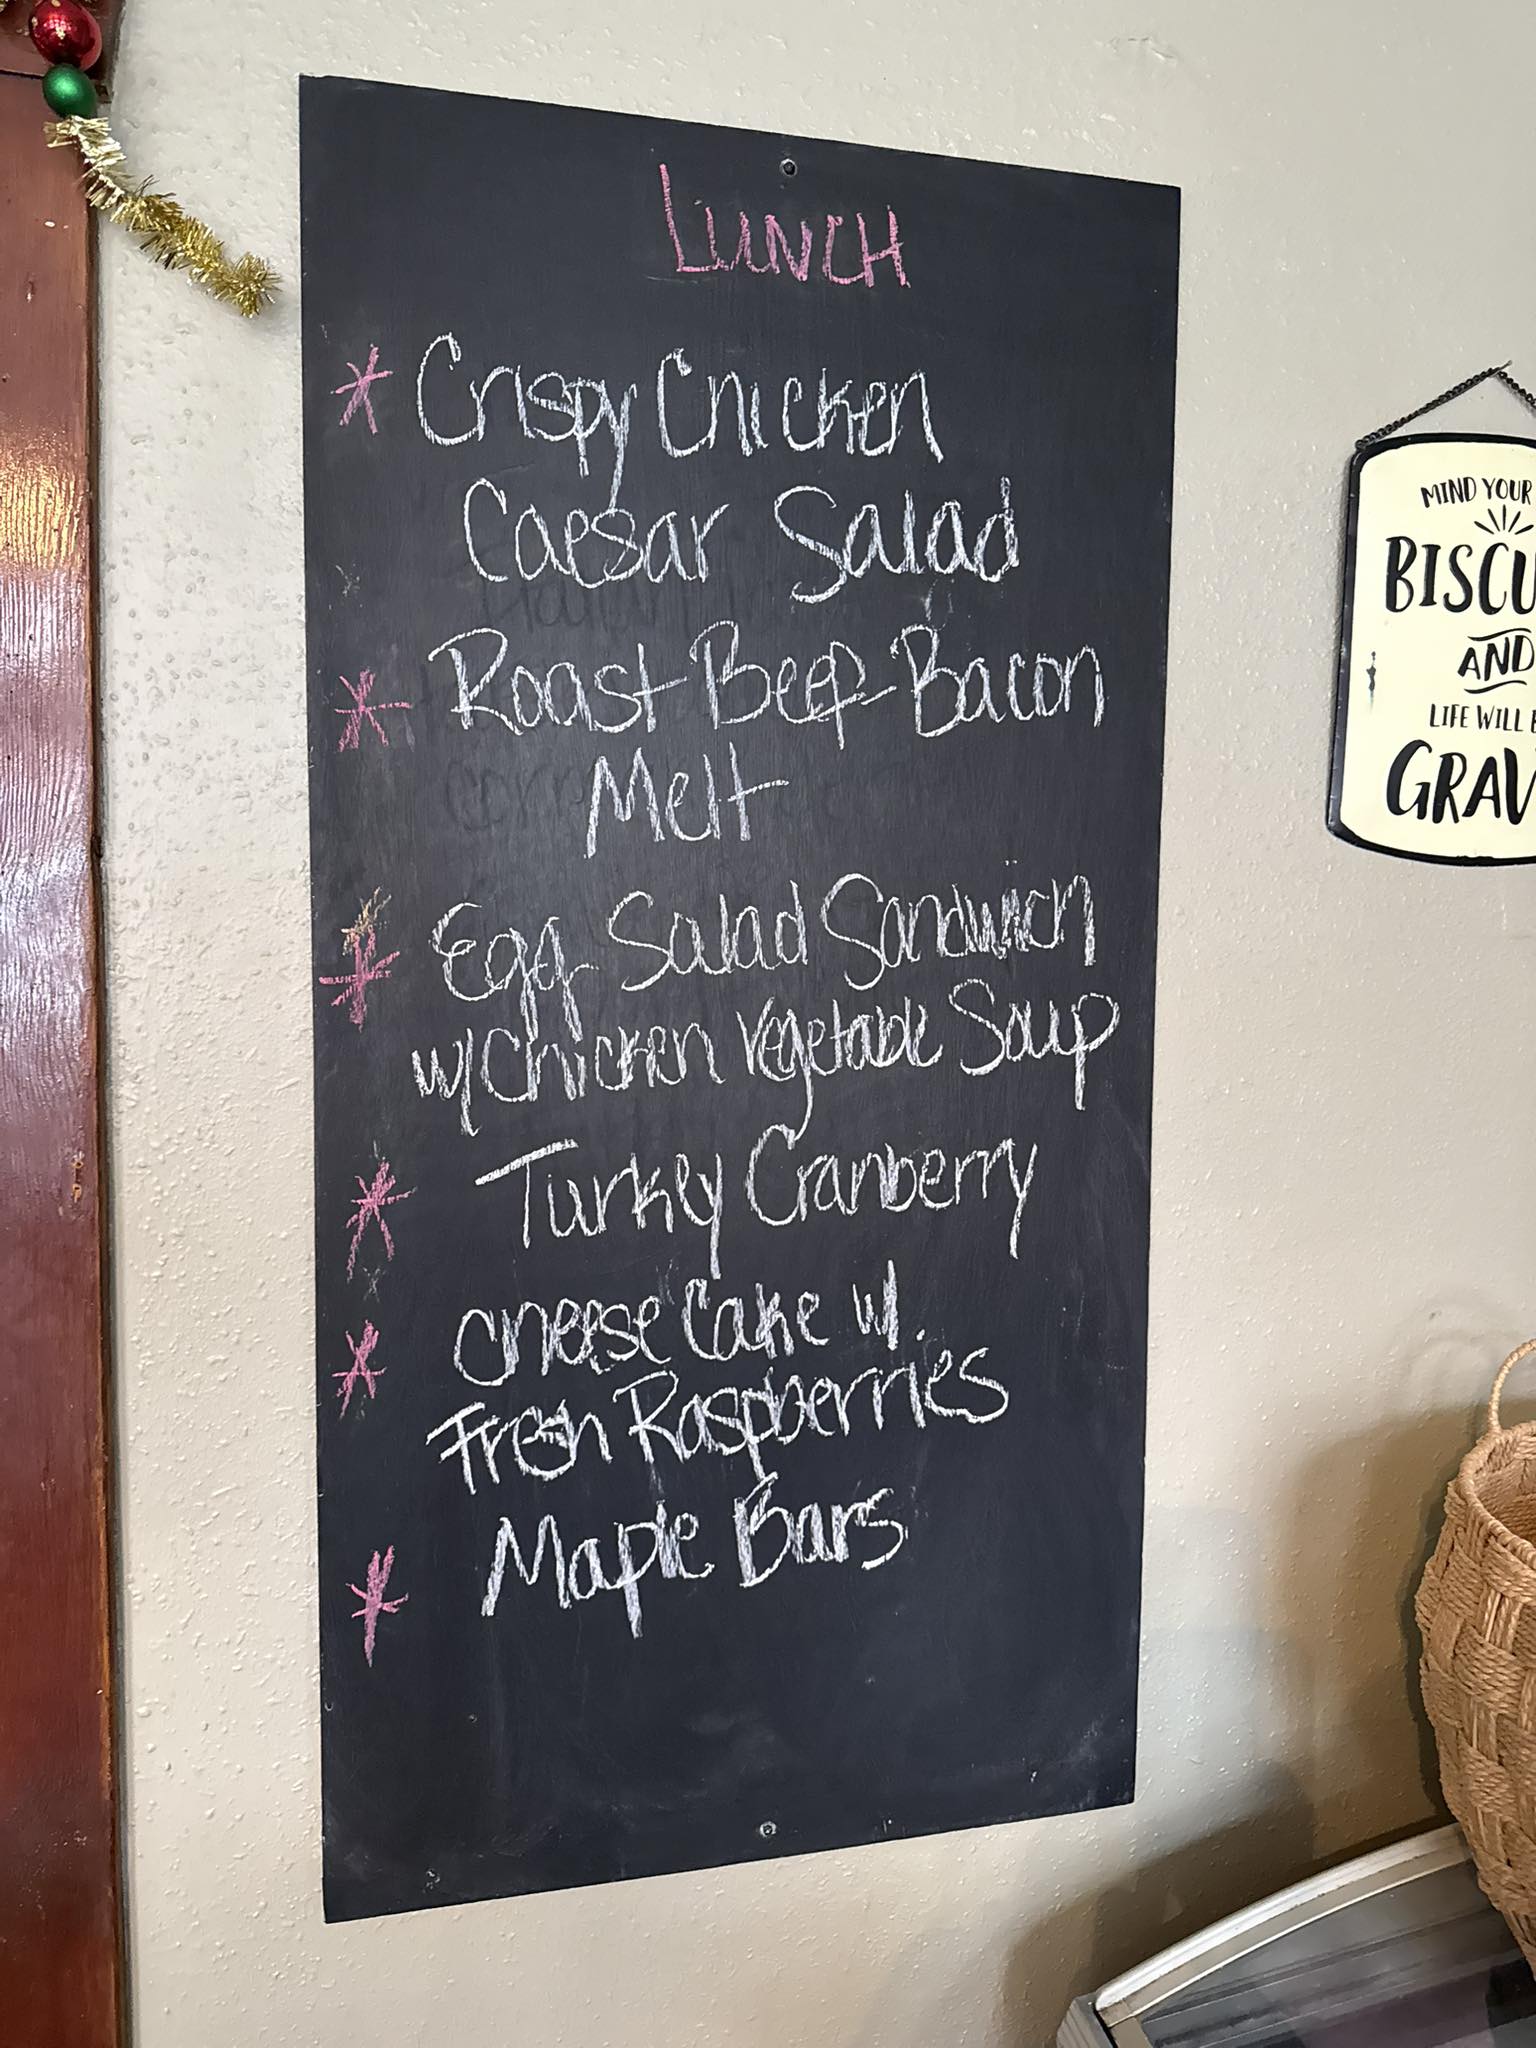 LUNCH
* Crispy Chicken
Caesar Salad
* Roast Beef Bacon
Melt
* Egg Salad Sandwich
w/Chicken Vegetable Soup
* Turkey Cranberry
* Cheese Cake w/.
Fresh Raspberries
* Maple Bars
MIND YOUR
BISCU
AND
LIFE WILL B
GRAV